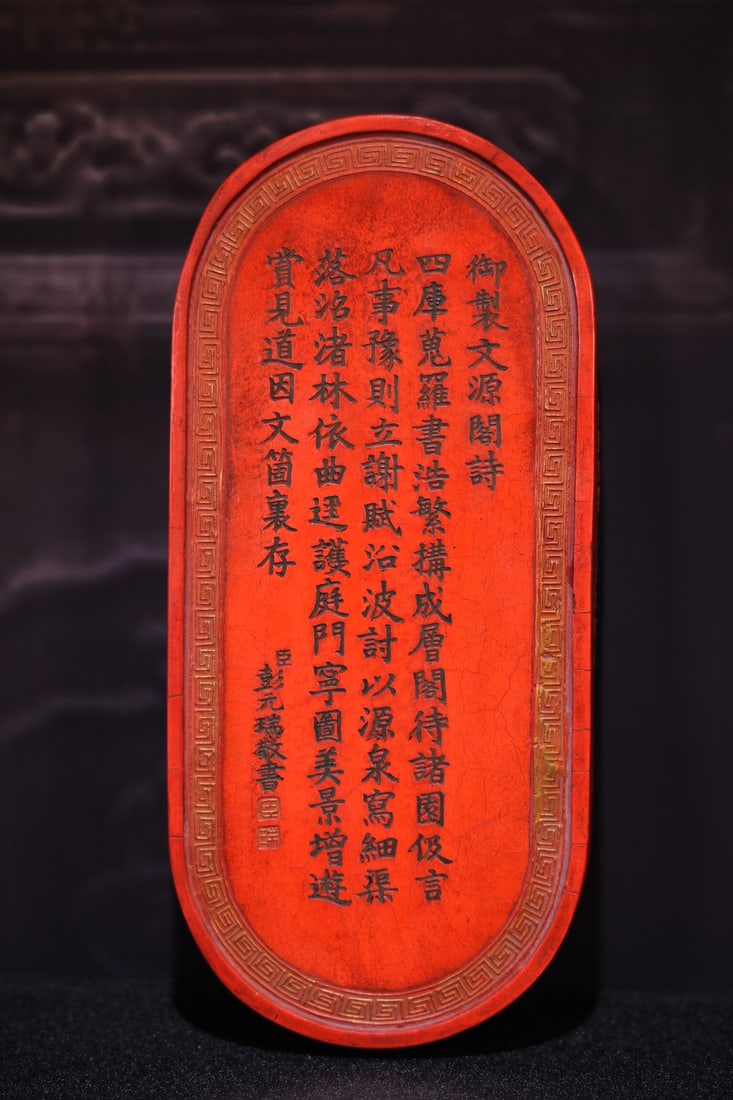 御製文源閣詩
四庫蒐羅書浩繁搆成層閣待諸園伋言
凡事豫則立謝賦沿波討以源泉寫細渠
落沼渚林依曲逕護庭門寧圖美景增遊
賞見道因文箇裏存
臣彭元瑞敬書
臣 瑞